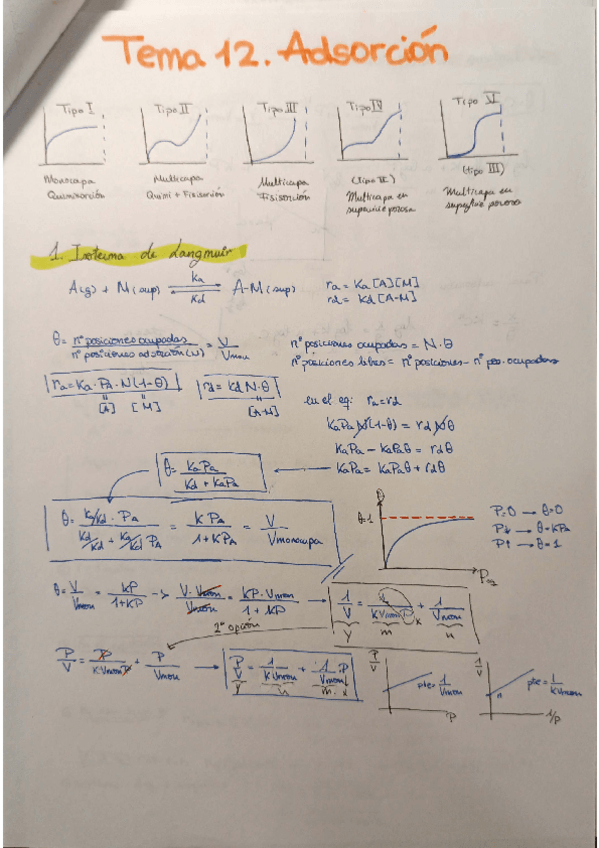 Tema 12. Adsorción
Tipo I
Tipo II
Tipo III
Tipo IV
Tipo VI
Monocapa
Quimisorción
Multicapa
Quimi + Fisisorción
Multicapa
Fisisorción
(tipo II)
Multicapa en
superficie porosa
(tipo III)
Multicapa en
superficie porosa
1. Isoterma de Langmuir
A(g) + M(sup) ⇌ A-M(sup)
ka
kd
ra = ka [A][M]
rd = kd [A-M]
θ = nº posiciones ocupadas / nº posiciones adsorción (N) = V / Vmon
nº posiciones ocupadas = N·θ
nº posiciones libres = nº posiciones - nº pos. ocupadas
ra = ka · PA · N(1-θ)
[A] [M]
rd = kd N·θ
[A-M]
en el eq: ra = rd
kaPa N(1-θ) = rd N θ
kaPa - kaPaθ = rdθ
kaPa = kaPaθ + rdθ
θ = kaPa / kd + kaPa
θ = ka/kd · PA / kd/kd + ka/kd PA = K PA / 1+KPA = V / Vmonocapa
θ=1
θ
Peq
P=0 → θ=0
P↓ → θ=KPa
P↑ → θ=1
θ = V / Vmon = KP / 1+KP → V·Vmon / Vmon = KP·Vmon / 1+KP → 1/V = 1 / KVmon P + 1 / Vmon
y m x n
2ª opción
P/V = P / KVmon P + P / Vmon → P/V = 1 / KVmon + 1 / Vmon · P
y n m x
P/V
pte = 1 / Vmon
P
1/V
n
pte = 1 / KVmon
1/P